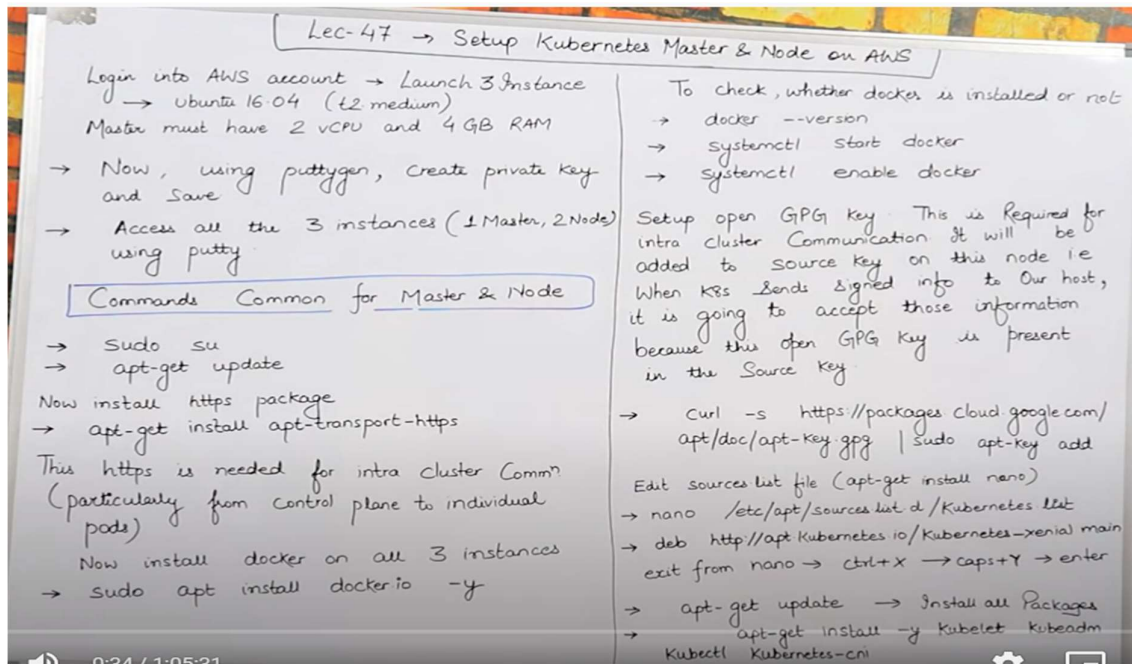 Lec-47 → Setup Kubernetes Master & Node on AWS
Login into AWS account → Launch 3 Instance
→ Ubuntu 16.04 (t2.medium)
Master must have 2 vCPU and 4 GB RAM
→ Now, using puttygen, Create private key
and Save
→ Access all the 3 instances (1 Master, 2 Node)
using putty
Commands Common for Master & Node
→ Sudo su
→ apt-get update
Now install https package
→ apt-get install apt-transport-https
This https is needed for intra cluster Commⁿ
(particularly from control plane to individual
pods)
Now install docker on all 3 instances
→ sudo apt install docker.io -y
To check, whether docker is installed or not
→ docker --version
→ systemctl start docker
→ systemctl enable docker
Setup open GPG Key. This is Required for
intra cluster Communication. It will be
added to source key on this node i.e
When K8s Sends signed info to Our host,
it is going to accept those information
because this open GPG Key is present
in the Source Key
→ Curl -s https://packages.cloud.google.com/
apt/doc/apt-key.gpg | sudo apt-key add
Edit sources list file (apt-get install nano)
→ nano /etc/apt/sources.list.d/Kubernetes.list
→ deb http://apt.Kubernetes.io/Kubernetes-xenial main
exit from nano → ctrl+X → caps+Y → enter
→ apt-get update → Install all Packages
→ apt-get install -y Kubelet Kubeadm
Kubectl Kubernetes-cni
0:24 / 1:05:21